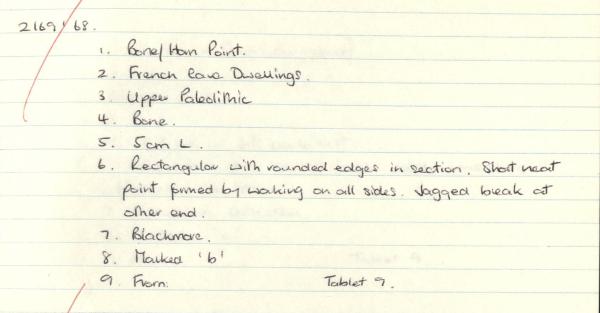 2169/68.
1. Bone/Horn Point.
2. French Cave Dwellings.
3 Upper Paleolithic
4. Bone.
5. 5cm L.
6. Rectangular with rounded edges in section. Short neat
point formed by working on all sides. Jagged break at
other end.
7. Blackmore.
8. Marked 'b'
9. From. Tablet 9.